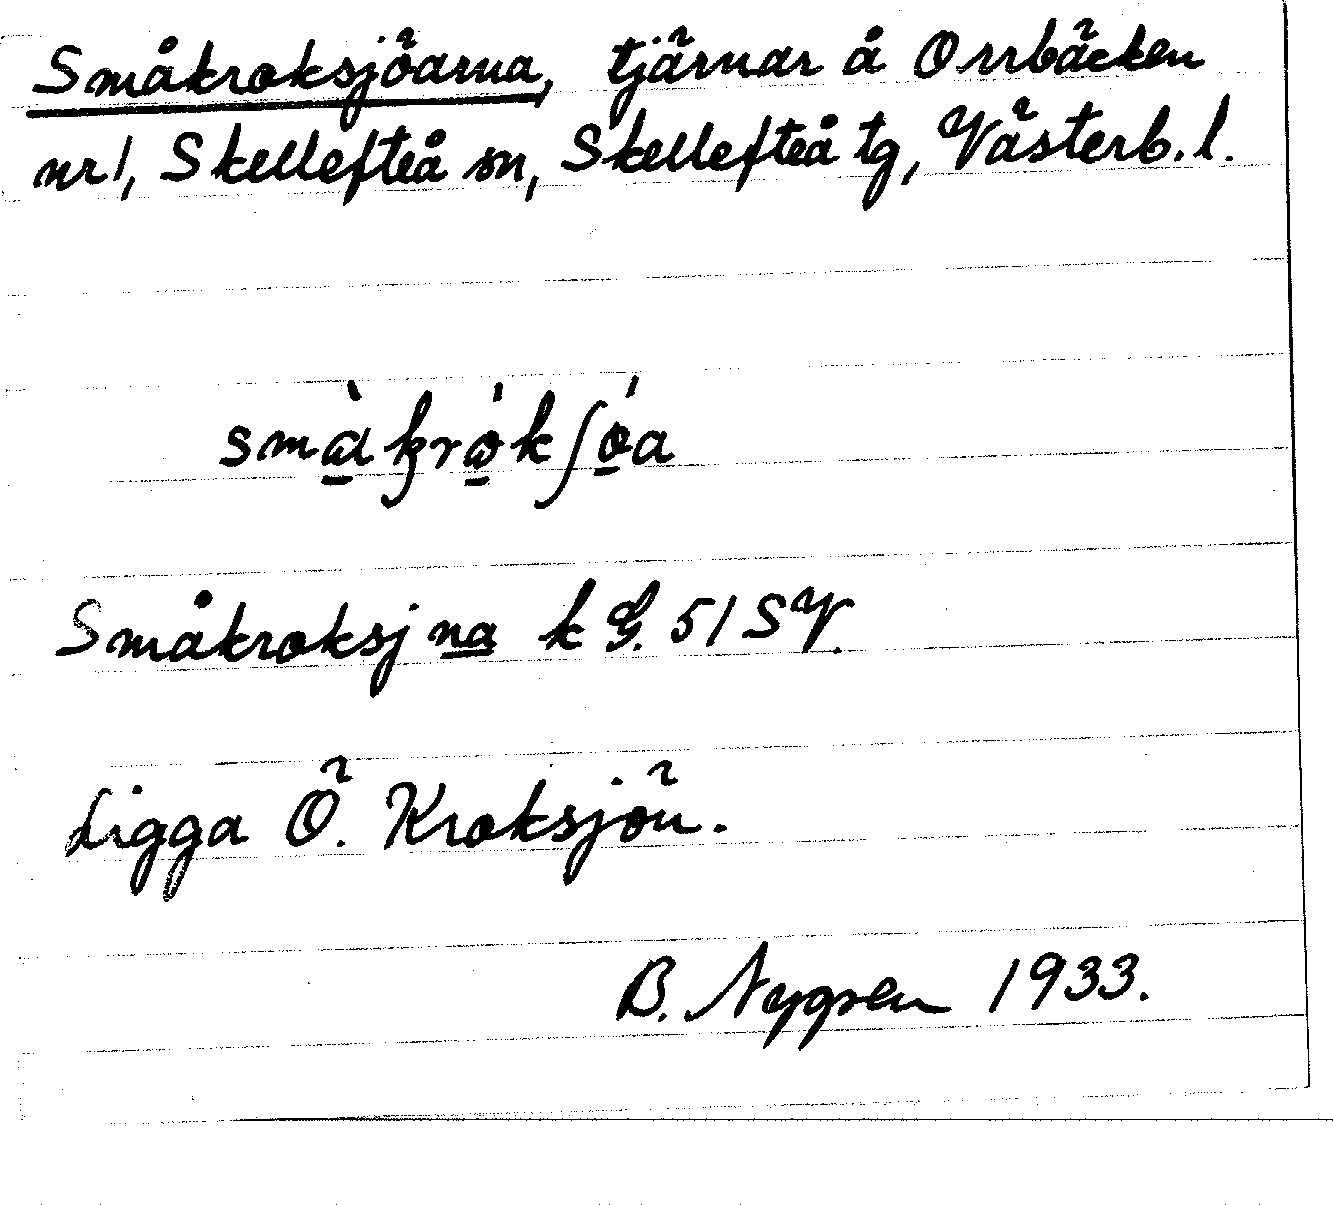 Småkroksjöarna, tjärnar å Orrbäcken
nr 1, Skellefteå sn, Skellefteå tg, Västerb. l.
Småkroksjna k G. 51 SV.
Ligga Ö. Kroksjön.
B. Nygren 1933.